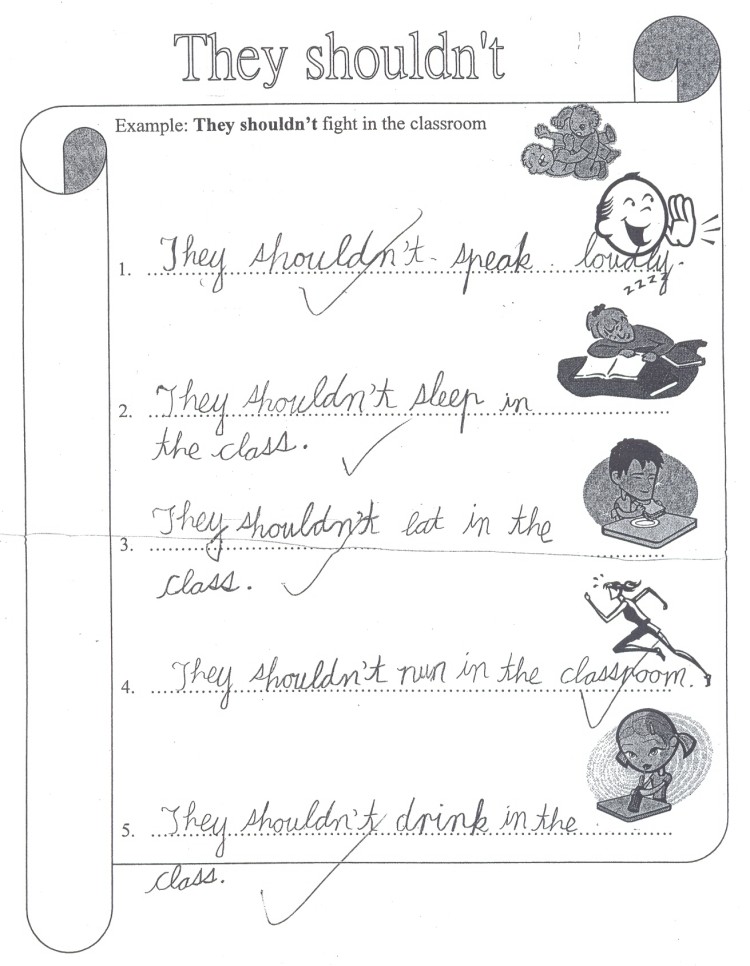 They shouldn't
Example: They shouldn't fight in the classroom
1. They shouldn't speak loudly.
zzzz
2. They shouldn't sleep in
the class.
3. They shouldn't eat in the
class.
4. They shouldn't run in the classroom.
5. They shouldn't drink in the
class.